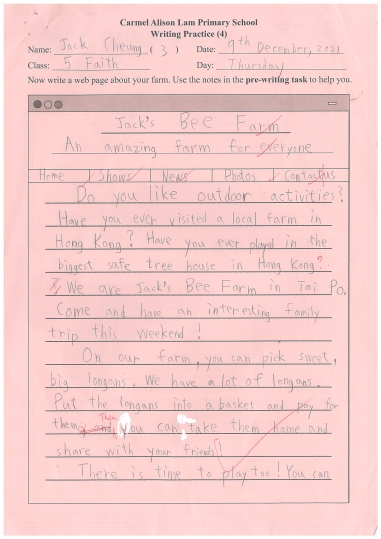 Carmel Alison Lam Primary School
Writing Practice (4)
Name: Jack Cheung (3) Date: 9th December, 2021
Class: 5 Faith Day: Thursday
Now write a web page about your farm. Use the notes in the pre-writing task to help you.
Jack's Bee Farm
An amazing farm for everyone
Home | Shows | News | Photos | Contact us
Do you like outdoor activities?
Have you ever visited a local farm in
Hong Kong? Have you ever played in the
biggest safe tree house in Hong Kong?
We are Jack's Bee Farm in Tai Po.
Come and have an interesting family
trip this weekend!
On our farm, you can pick sweet,
big longans. We have a lot of longans.
Put the longans into a basket and pay for
them. and Then you can take them home and
share with your friends!
There is time to play too! You can